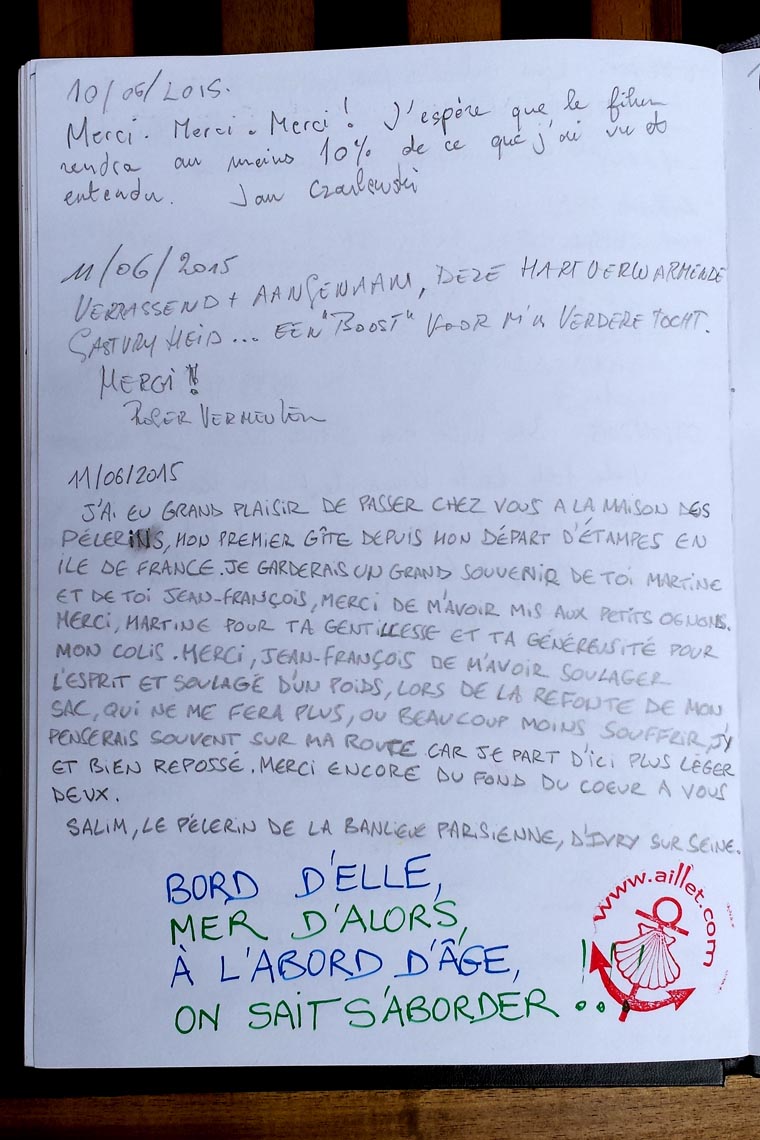 10/06/2015.
Merci. Merci. Merci! J'espère que le film
rendra au moins 10% de ce que j'ai vu et
entendu. Jan Czarlewski
11/06/2015
VERRASSEND + AANGENAAM, DEZE HARTVERWARMENDE
GASTVRYHEID... EEN "BOOST" VOOR M'N VERDERE TOCHT.
MERCI!!
ROGER VERMEULEN
11/06/2015
J'AI EU GRAND PLAISIR DE PASSER CHEZ VOUS A LA MAISON DES
PÉLERINS, MON PREMIER GÎTE DEPUIS MON DÉPART D'ÉTAMPES EN
ILE DE FRANCE. JE GARDERAIS UN GRAND SOUVENIR DE TOI MARTINE
ET DE TOI JEAN-FRANÇOIS, MERCI DE M'AVOIR MIS AUX PETITS OGNONS.
MERCI, MARTINE POUR TA GENTILLESSE ET TA GÉNÉREUSITÉ POUR
MON COLIS. MERCI, JEAN-FRANÇOIS DE M'AVOIR SOULAGER
L'ESPRIT ET SOULAGÉ D'UN POIDS, LORS DE LA REFONTE DE MON
SAC, QUI NE ME FERA PLUS, OU BEAUCOUP MOINS SOUFFRIR, J'Y
PENSERAIS SOUVENT SUR MA ROUTE CAR JE PART D'ICI PLUS LÉGER
ET BIEN REPOSSÉ. MERCI ENCORE DU FOND DU COEUR A VOUS
DEUX.
SALIM, LE PÉLERIN DE LA BANLIEUE PARISIENNE, D'IVRY SUR SEINE.
BORD D'ELLE,
MER D'ALORS,
À L'ABORD D'ÂGE,
ON SAIT S'ABORDER !!!...
www.aillet.com